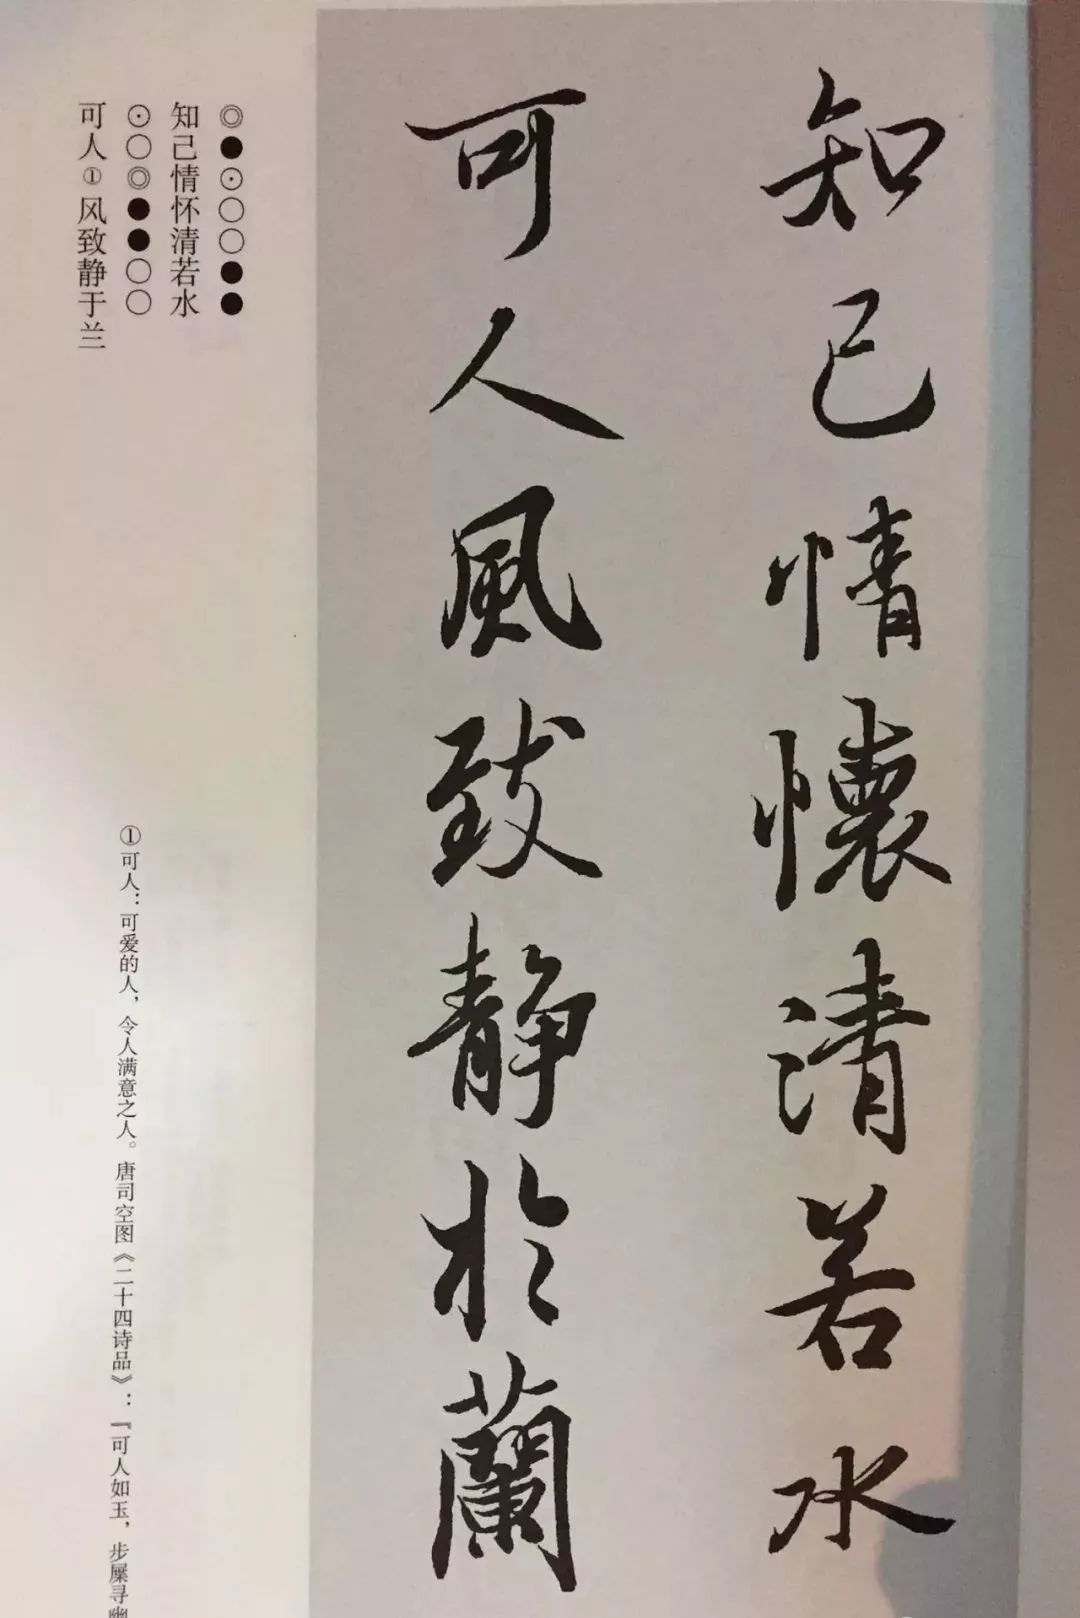 知己情懷清若水
可人風致静於蘭
◎●⊙○○●●
知己情怀清若水
⊙○◎●●○○
可人①风致静于兰
①可人：可爱的人，令人满意之人。唐司空图《二十四诗品》：『可人如玉，步屧寻幽